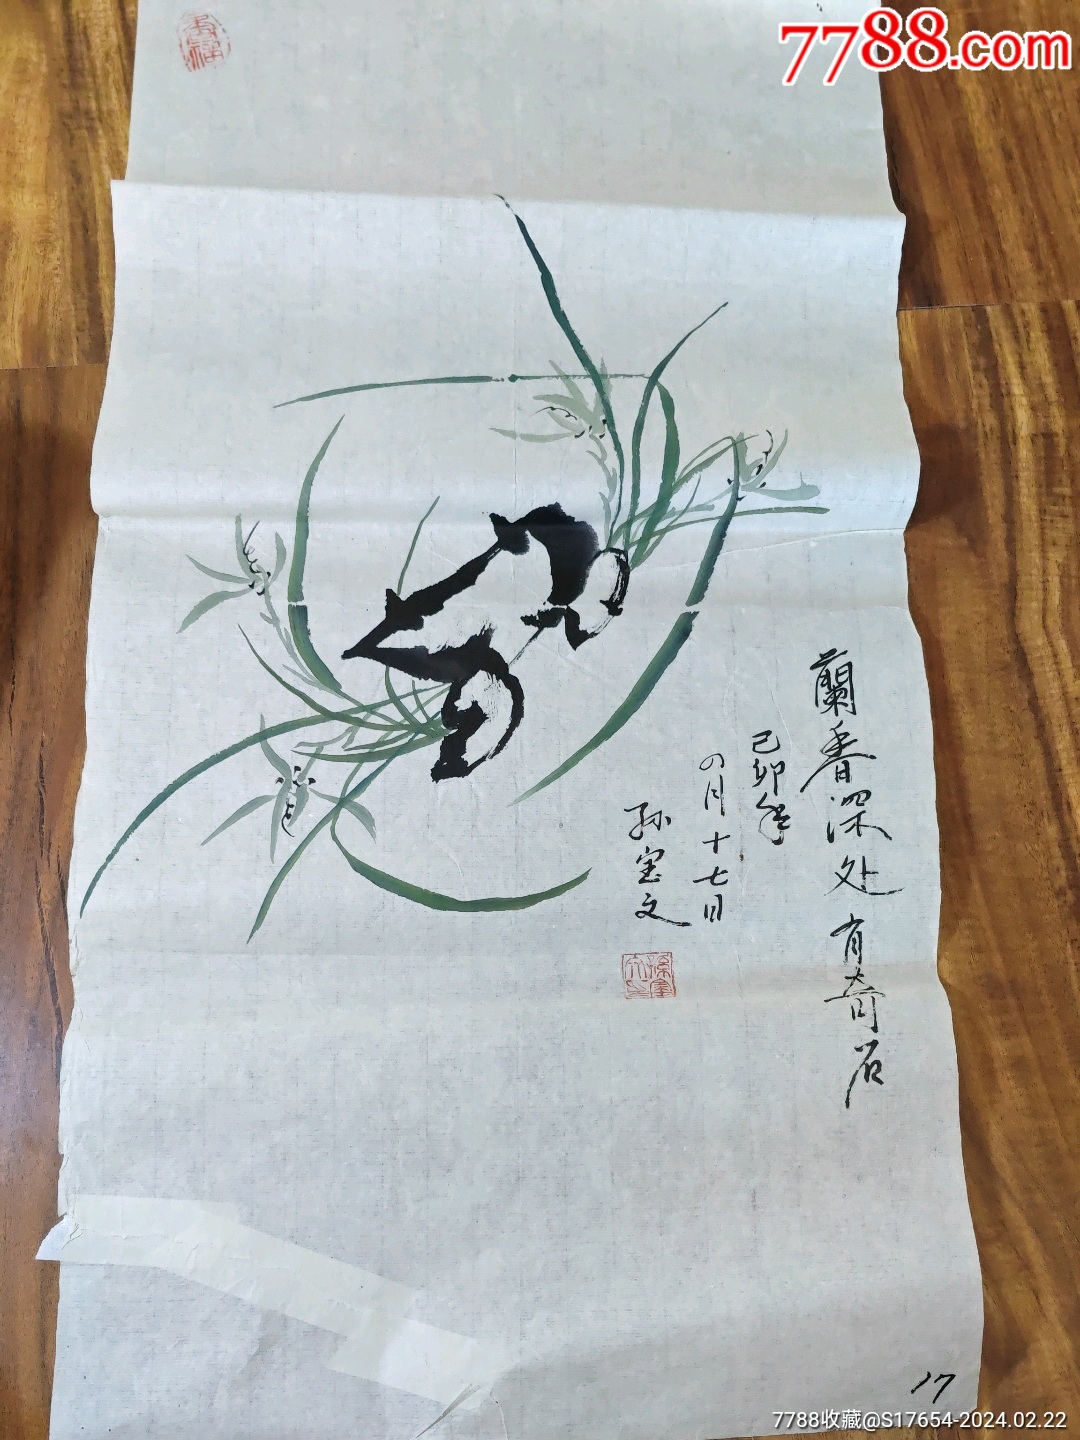 7788.com
蘭香深处有奇石
己卯年
四月十七日
孙宝文
17
7788收藏@S17654-2024.02.22